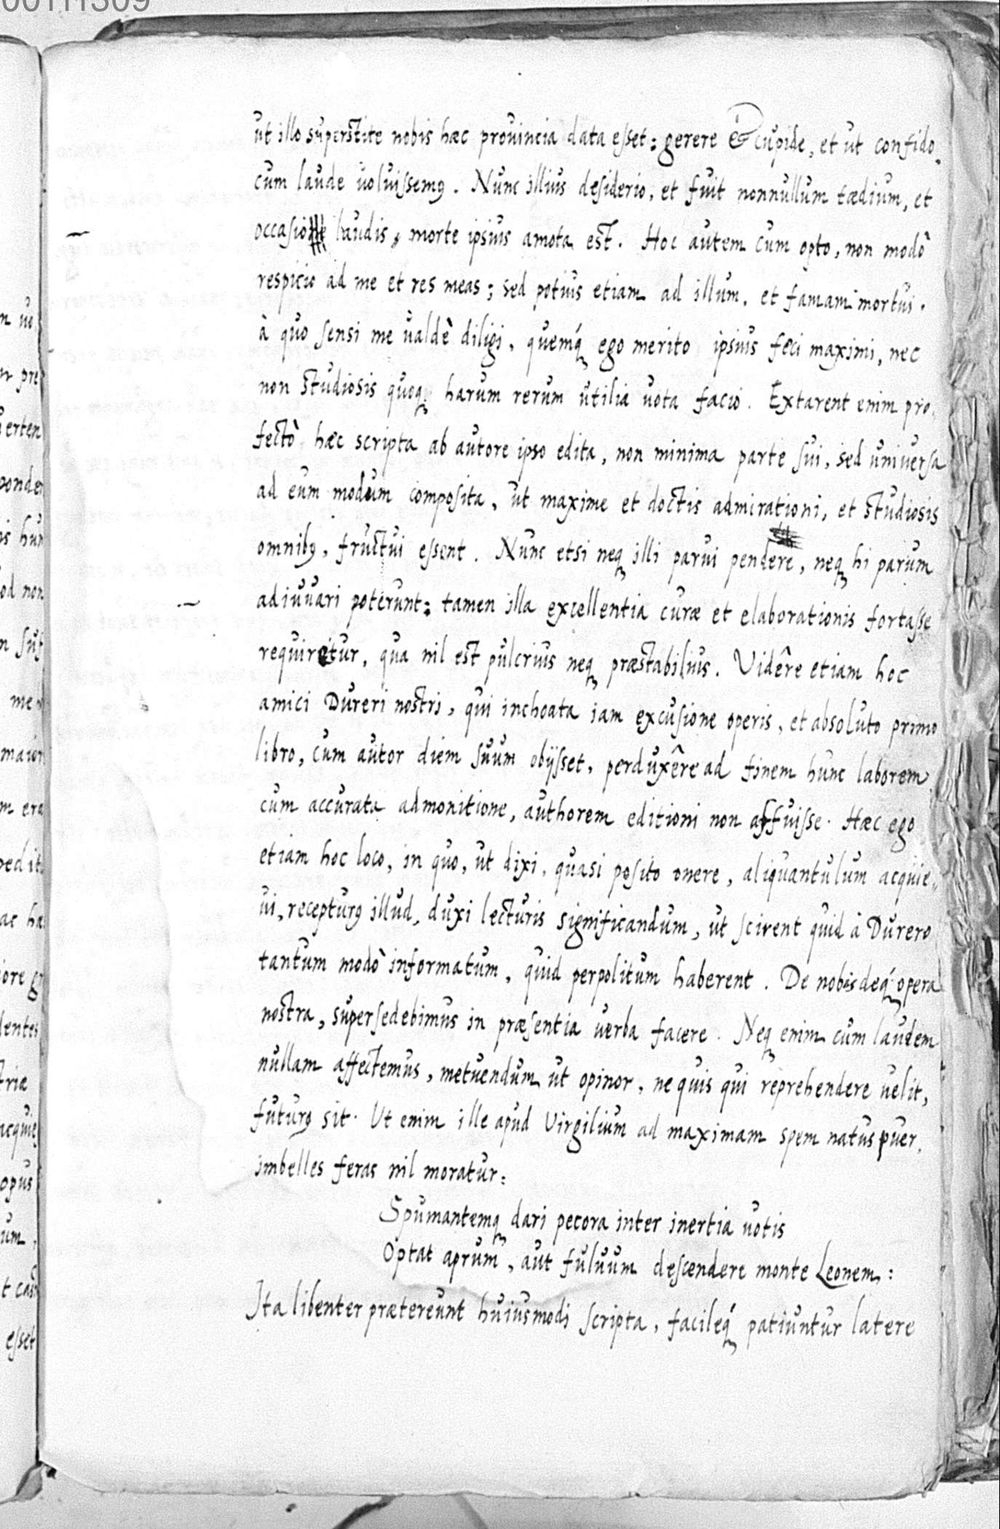 00111309
ut illo superstite nobis hæc prouincia data esset: gerere & cupide, et ut confido,
cum laude uoluissemꝰ. Nunc illius desiderio, et fuit nonnullum tædium, et
occasio laudis, morte ipsius amota est. Hoc autem cum opto, non modò
respicio ad me et res meas; sed potius etiam ad illum, et famam mortui.
à quo sensi me ualdè diligi, quemq́ ego merito ipsius feci maximi, nec
non studiosis quoqꝫ harum rerum utilia uota facio. Extarent enim pro
fectò hæc scripta ab autore ipso edita, non minima parte sui, sed uniuersa
ad eum modum composita, ut maxime et doctis admirationi, et studiosis
omnibꝰ, fructui essent. Nunc etsi neqꝫ illi parui pendere, neqꝫ hi parum
adiuuari poterunt: tamen illa excellentia curæ et elaborationis fortasse
requiretur, qua nil est pulcrius neqꝫ præstabilius. Vidêre etiam hoc
amici Dureri nostri, qui inchoata iam excusione operis, et absoluto primo
libro, cum autor diem suum obijsset, perduxêre ad finem hunc laborem
cum accurata admonitione, authorem editioni non affuisse. Hæc ego
etiam hoc loco, in quo, ut dixi, quasi posito onere, aliquantulum acquie,
ui, recepturꝰ illud, duxi lecturis significandum, ut scirent quid à Durero
tantum modò informatum, quid perpolitum haberent. De nobis deq́ opera
nostra, supersedebimus in præsentia uerba facere. Neqꝫ enim cum laudem
nullam affectemus, metuendum ut opinor, ne quis qui reprehendere uelit,
futurꝰ sit. Ut enim ille apud Virgilium ad maximam spem natus puer,
imbelles feras nil moratur:
Spumantemqꝫ dari pecora inter inertia uotis
Optat aprum, aut fuluum descendere monte Leonem:
Ita libenter prætereunt huiusmodi scripta, facileq́ patiuntur latere